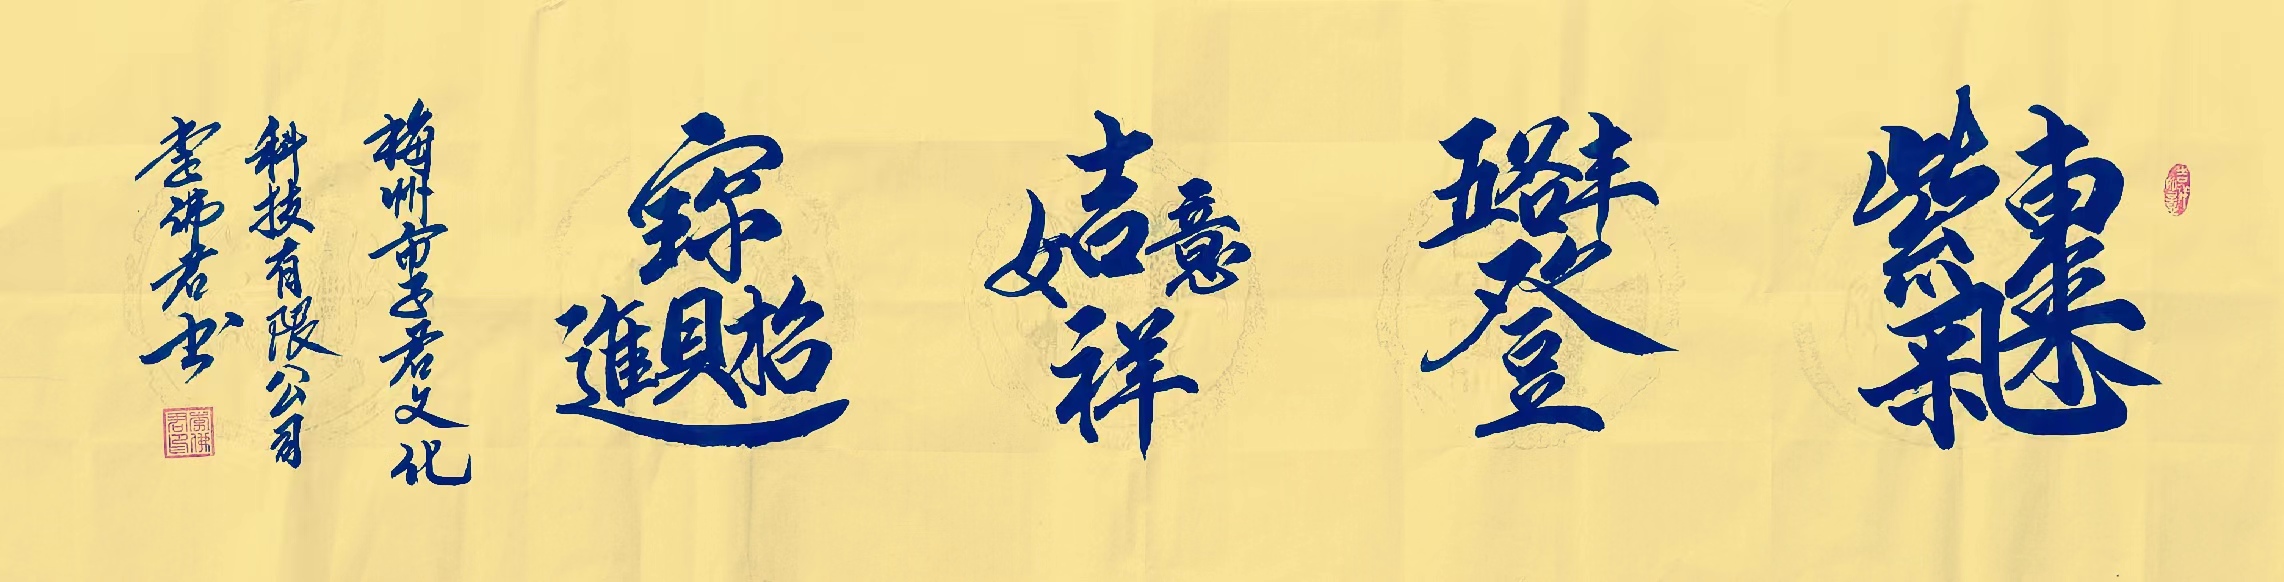 紫氣東來
五谷丰登
吉祥如意
招財進寳
梅州市子君文化
科技有限公司
佛君书